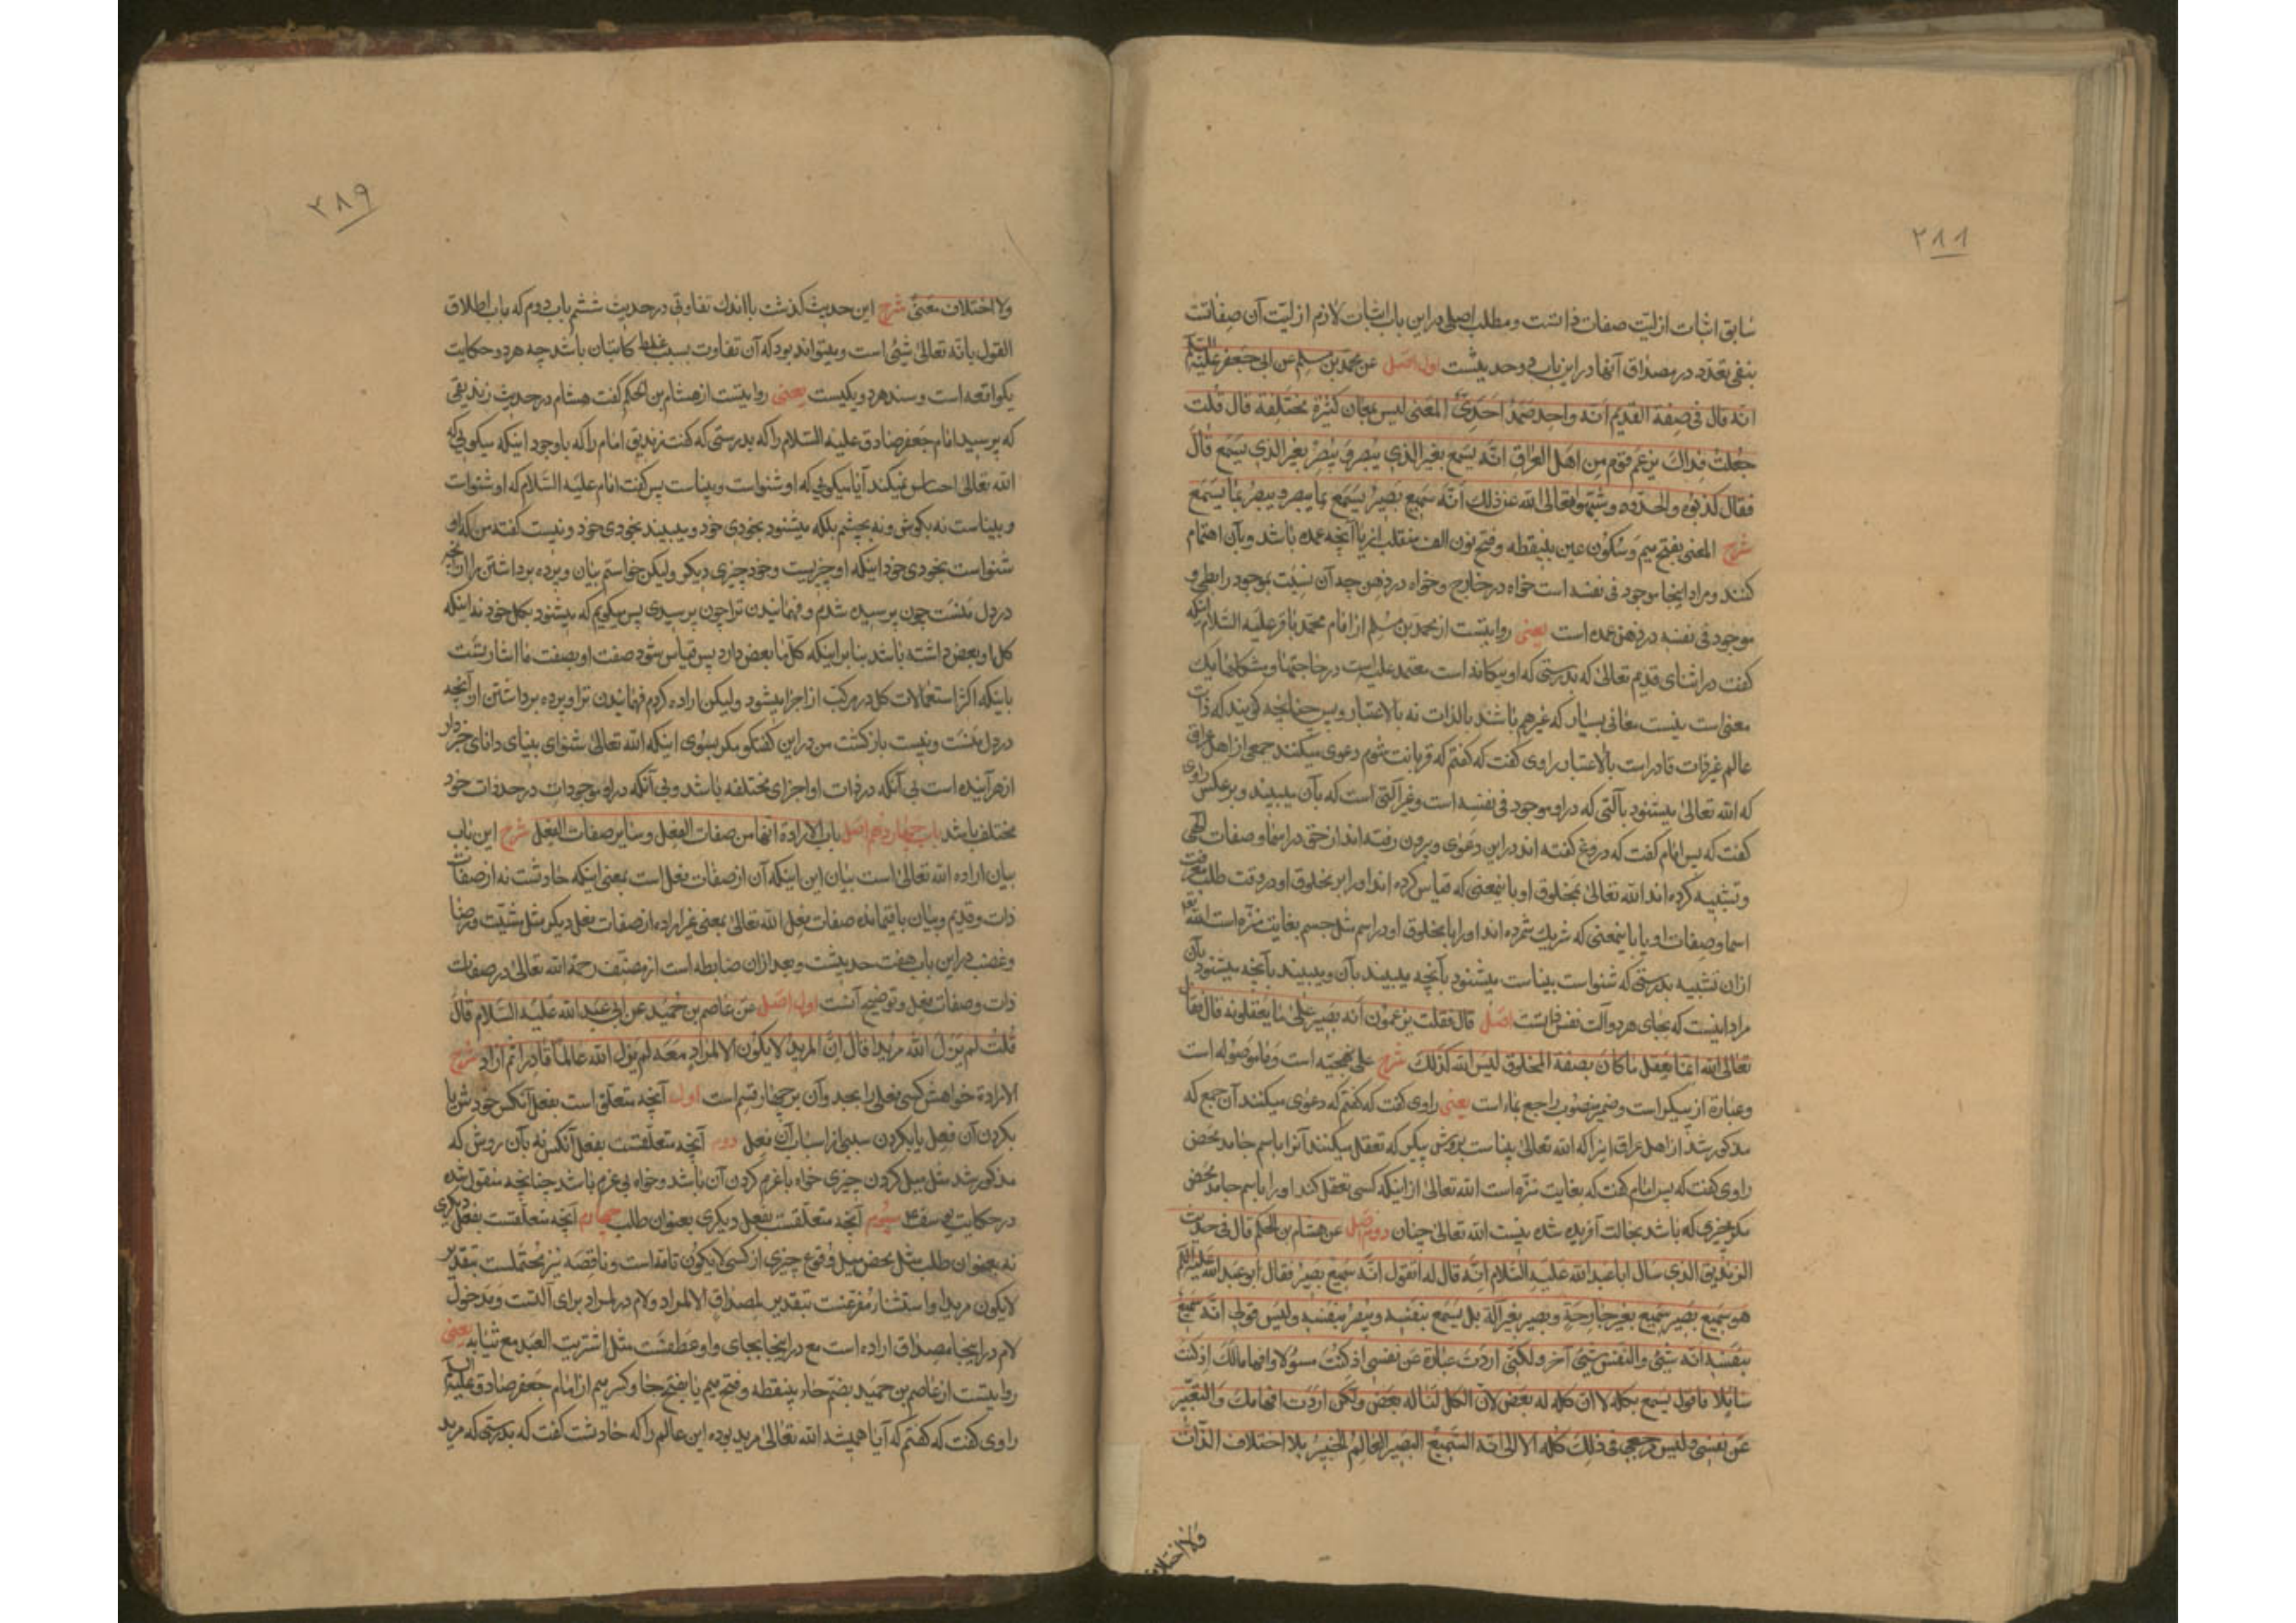 ٢٨٨
سابق اثبات ازلیّت صفات ذاتست و مطلب اصلی در این باب اثبات لازم ازلیّت آن صفاتست
بنفی تعدّد در مصداق آنها در این باب دو حدیثست اول اصل عن محمد بن مسلم عن ابی جعفر علیه السلام
انّه قال فی صفة القدیم انّه واحد صمد احدیّ المعنی لیس بمعان کثیرة مختلفة قال قلت
جعلت فداک یزعم قوم من اهل العراق انّه یسمع بغیر الذی یبصر و یبصر بغیر الذی یسمع قال
فقال کذبوا و الحدوا و شبّهوا تعالی الله عن ذلک انّه سمیع بصیر یسمع بما یبصر و یبصر بما یسمع
شرح المعنی بفتح میم و سکون عین بینقطه و فتح نون الف منقلب از یا آنچه عمده باشد و بآن اهتمام
کنند و مراد اینجا موجود فی نفسه است خواه در خارج و خواه در ذهن چه آن نسبت بموجود رابطی و
موجود فی نفسه در ذهن عمده است یعنی روایتست از محمد بن مسلم از امام محمد باقر علیه السلام اینکه
گفت در اثنای قدیم تعالی که بدرستی که او یگانه است معتمد علیه است در حاجتها و مشکلها یک
معنی است نیست معانی بسیار که غیر هم باشند بالذات نه بالاعتبار و بس چنانچه گویند که ذات
عالم غیر ذات قادر است بالاعتبار راوی گفت که گفتم که قربانت شوم دعوی میکنند جمعی از اهل عراق
که الله تعالی میشنود بآلتی که در او موجود فی نفسه است و غیر آلتی است که بآن میبیند و بر عکس راوی
گفت که پس امام گفت که دروغ گفته اند در این دعوی و بیرون رفته اند از حق در اسما و صفات الهی
و تشبیه کرده اند الله تعالی بمخلوق او باینمعنی که قیاس کرده اند او را بر مخلوق او در وقت طلب معرفت
اسما و صفات او یا باینمعنی که شریک شمرده اند او را با مخلوق او در اسم مثل جسم بغایت منزّه است الله تعالی
ازان تشبیه بدرستی که شنواست بیناست میشنود بآنچه میبیند بآن و میبیند بآنچه میشنود بآن
مراد اینست که بجای هر دو آلت نفس ذاتست اصل قال فقلت یزعمون انّه بصیر علی ما یعقلونه قال فقال
تعالی الله انما یعقل ما کان بصفة المخلوق لیس الله کذلک شرح علی نهجیّه است و ما موصوله است
و عبارة از پیکر است و ضمیر منصوب راجع بماء است یعنی راوی گفت که گفتم که دعوی میکنند آن جمع که
مذکور شد از اهل عراق اینرا که الله تعالی بیناست بروش پیکر که تعقل میکنند آنرا باسم جامد محض
راوی گفت که پس امام گفت که بغایت منزّه است الله تعالی از اینکه کسی تعقل کند او را باسم جامد محض
مگر چیزی که باشد بحالت آفریده شده نیست الله تعالی چنان دوم اصل عن هشام بن الحکم قال فی حدیث
الزندیق الذی سال ابا عبد الله علیه السلام انّه قال له اتقول انّه سمیع بصیر فقال ابو عبد الله علیه السلام
هو سمیع بصیر سمیع بغیر جارحة و بصیر بغیر آلة بل یسمع بنفسه و یبصر بنفسه و لیس قولی انّه سمیع
بنفسه انّه شیء و النفس شیء آخر و لکنّی اردت عبارة عن نفسی اذ کنت مسئولا و افهاما لک اذ کنت
سایلا فاقول یسمع بکله لا ان کله له بعض لان الکل لنا له بعض و لکن اردت افهامک و التعبیر
عن نفسی و لیس مرجعی فی ذلک کله الا الی انّه السمیع البصیر العالم الخبیر بلا اختلاف الذات
ولا اختلاف
٢٨٩
ولا اختلاف معنی شرح این حدیث گذشت با اندک تفاوتی در حدیث ششم باب دوم که باب اطلاق
القول بانّه تعالی شیء است و میتواند بود که آن تفاوت بسبب غلط کاتبان باشد چه هر دو حکایت
یکواقعه است و سند هر دو یکیست یعنی روایتست از هشام بن الحکم گفت هشام در حدیث زندیقی
که پرسید امام جعفر صادق علیه السلام را که بدرستی که گفت زندیق امام را که باوجود اینکه میگویی که
الله تعالی احساس نمیکند آیا میگویی که او شنواست و بیناست پس گفت امام علیه السلام که او شنواست
و بیناست نه بگوش و نه بچشم بلکه میشنود بخودی خود و میبیند بخودی خود و نیست گفته من که او
شنواست بخودی خود اینکه او چیزیست و خود چیزی دیگر و لیکن خواستم بیان و پرده برداشتن را از آنچه
در دل منست چون پرسیده شدم و فهمانیدن ترا چون پرسیدی پس میگویم که میشنود بکل خود نه اینکه
کل او بعض داشته باشد بنابر اینکه کل ما بعض دارد پس قیاس شود صفت او بصفت ما اشارتست
باینکه اکثر استعمالات کل در مرکب از اجزا میشود و لیکن اراده کردم فهمانیدن ترا و پرده برداشتن از آنچه
در دل منست و نیست بازگشت من در این گفتگو مگر بسوی اینکه الله تعالی شنوای بینای دانای خبردار
از هر آینده است بی آنکه در ذات او اجزای مختلفه باشد و بی آنکه در او موجودات در حد ذات خود
مختلف باشد باب چهاردهم اصل باب الارادة انها من صفات الفعل و سایر صفات الفعل شرح این باب
بیان اراده الله تعالی است بیان این اینکه آن از صفات فعل است بمعنی اینکه حادثست نه از صفات
ذات و قدیم و بیان باقیمانده صفات فعل الله تعالی بمعنی غیر اراده از صفات فعل دیگر مثل مشیّت و رضا
و غضب در این باب هفت حدیثست و بعد ازان ضابطه است از مصنّف رحمه الله تعالی در صفات
ذات و صفات فعل و توضیح آنست اول اصل عن عاصم بن حمید عن ابی عبد الله علیه السلام قال
قلت لم یزل الله مریدا قال انّ المرید لا یکون الا المراد معه لم یزل الله عالما قادرا ثم اراد شرح
الارادة خواهش کسی فعلی را بجد و آن بر چهار قسم است اول آنچه متعلّق است بفعل آنکس خودش یا
بکردن آن فعل یا بکردن سببی از اسباب آن فعل دوم آنچه متعلّقست بفعل آنکس نه بآن روش که
مذکور شد مثل میل کردن چیزی خواه با عزم کردن آن باشد و خواه بی عزم باشد چنانچه منقول شده
در حکایت یوسف سیّوم آنچه متعلّقست بفعل دیگری بعنوان طلب چهارم آنچه متعلّقست بفعل دیگری
نه بعنوان طلب مثل محض میل وقوع چیزی از کسی لا یکون تامه است و ناقصه نیز محتملست بتقدیر
لا یکون مریدا و استثنا مفرّغست بتقدیر لمصداق الا المراد و لام در لمراد برای آلتست و مدخول
لام در اینجا مصداق اراده است مع در اینجا بجای واو عطفست مثل اشتریت العبد مع ثیابه یعنی
روایتست از عاصم بن حمید بضمّ حاء بینقطه و فتح میم یا بفتح حا و کسر میم از امام جعفر صادق علیه السلام
راوی گفت که گفتم که آیا همیشه الله تعالی مرید بوده این عالم را که حادثست گفت که بدرستی که مرید